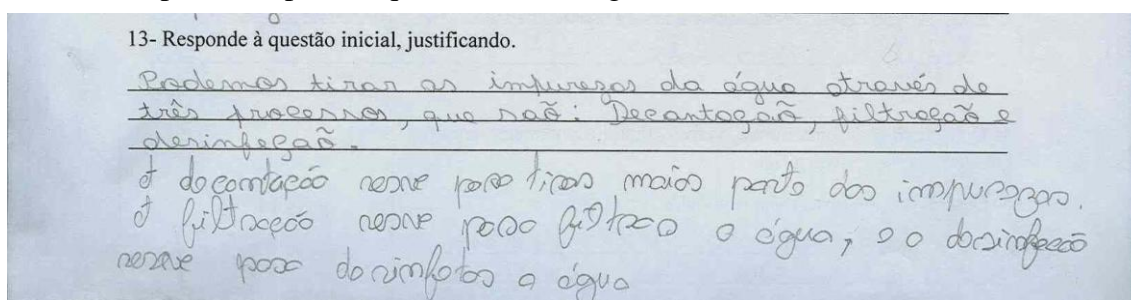 13- Responde à questão inicial, justificando.
Podemos tirar as impurezas da água através de
três processos, que saõ: Decantaçaõ, filtraçaõ e
desinfeçaõ.
A decantação serve para tirar maior parte das impurezas.
A filtração serve para filtrar a água, e a desinfeção
serve para a água